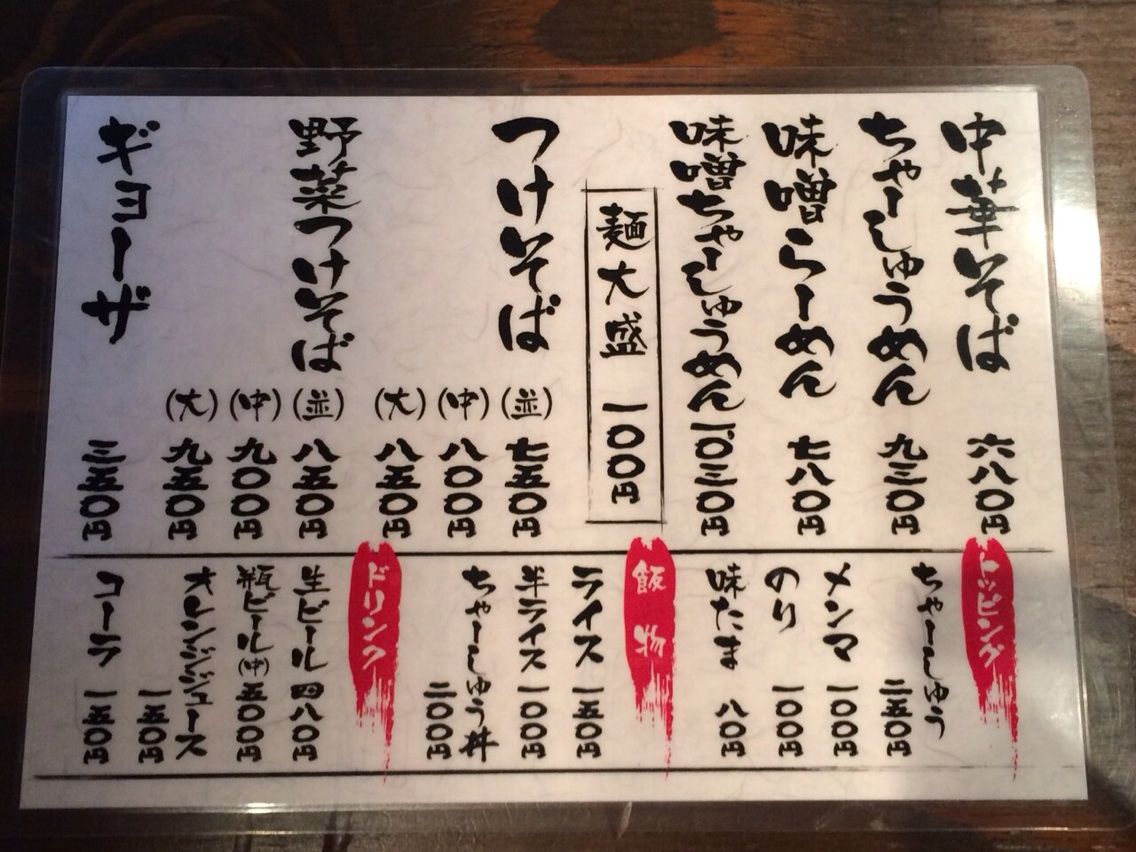 中華そば 六八〇円
ちゃーしゅうめん 九三〇円
味噌らーめん 七八〇円
味噌ちゃーしゅうめん 一〇三〇円
麺大盛 一〇〇円
つけそば (並) 七五〇円
(中) 八〇〇円
(大) 八五〇円
野菜つけそば (並) 八五〇円
(中) 九〇〇円
(大) 九五〇円
ギョーザ 三五〇円
トッピング
ちゃーしゅう 二五〇円
メンマ 一〇〇円
のり 一〇〇円
味たま 八〇円
飯物
ライス 一五〇円
半ライス 一〇〇円
ちゃーしゅう丼 二〇〇円
ドリンク
生ビール 四八〇円
瓶ビール(中) 五〇〇円
オレンジジュース 一五〇円
コーラ 一五〇円